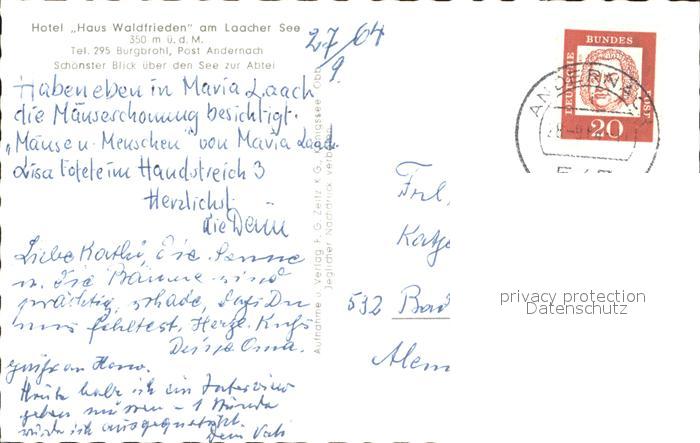 Hotel „Haus Waldfrieden" am Laacher See
350 m ü. d. M.
Tel. 295 Burgbrohl, Post Andernach
Schönster Blick über den See zur Abtei
27/9. 64
Haben eben in Maria Laach
die Mäuseschonung besichtigt.
„Mäuse u. Menschen" von Maria Laach.
Lisa tötete im Handstreich 3
Herzlichst
die
Liebe Kathi, die Sonne
u. die Bäume sind
prächtig, schade, dass Du
uns fehltest. Herzl. Kuß
Deine Oma.
Heute habe ich ein Interview
geben müssen - 1 Stunde
wurde ich ausgequetscht.
Dein Vati
Aufnahme u. Verlag F. G. Zeitz K.G., Königssee/Obb.
Jeglicher Nachdruck verboten
DEUTSCHE
BUNDES
POST
20
ANDERNACH
Frl.
Katje
532 Bad
Alem
privacy protection
Datenschutz